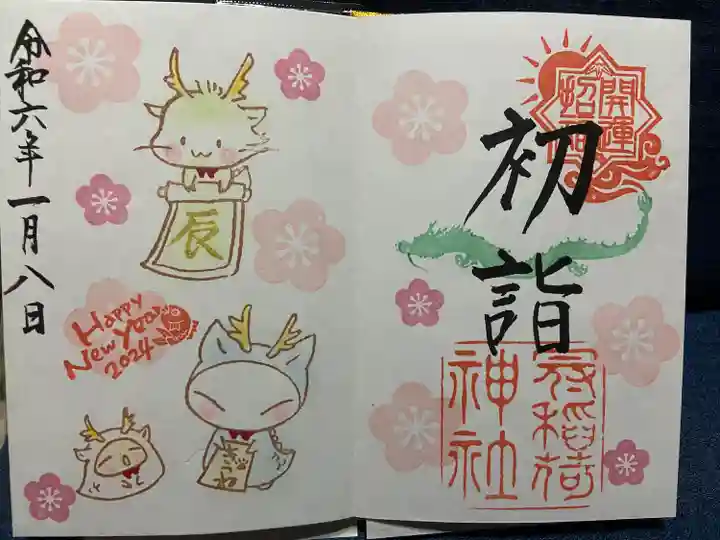 開運
招福
初詣
冠稲荷
神社
辰
Happy
New Year
2024
令和六年一月八日